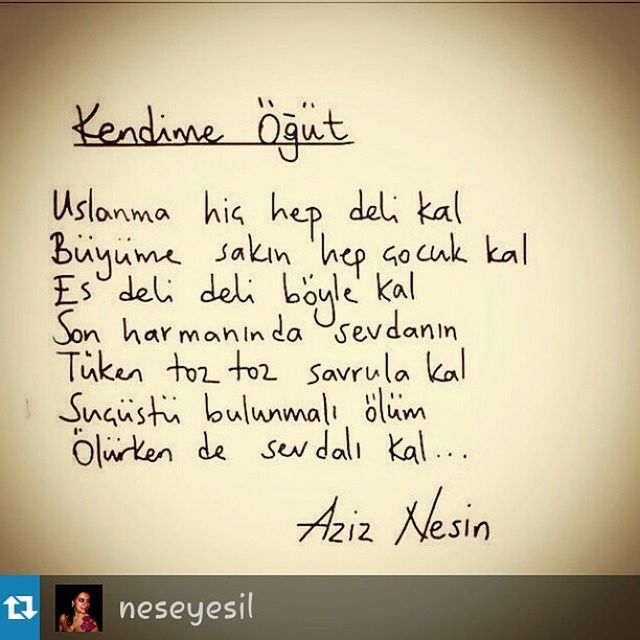 Kendime Öğüt
Uslanma hiç hep deli kal
Büyüme sakın hep çocuk kal
Es deli deli böyle kal
Son harmanında sevdanın
Tüken toz toz savrula kal
Suçüstü bulunmalı ölüm
Ölürken de sevdalı kal...
Aziz Nesin
neseyesil